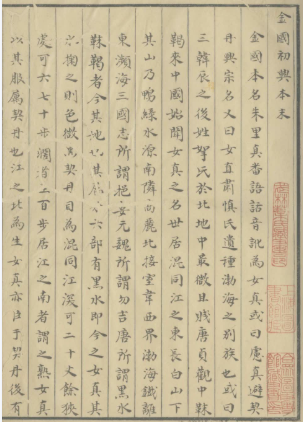 金國初興本末
金國本名朱里真番語訛為女真或曰慮真避契
丹興宗名又曰女直肅慎氏遺種渤海之別族也或曰
三韓辰之後姓拏氏於北地中最微且賤唐貞觀中靺
鞨來中國始聞女真之名世居混同江之東長白山下
其山乃鴨綠水源南隣高麗北接室韋西界渤海鐵離
東瀕海三國志所謂挹婁元魏所謂勿吉唐所謂黑水
靺鞨者今其地也其屬分六部有黑水部即今之女真其
水掬之則色微黑契丹目為混同江深可二十丈餘狹
處可六七十步闊者二百步居江之南者謂之熟女真
以其服屬契丹也江之北為生女真亦臣于契丹後有